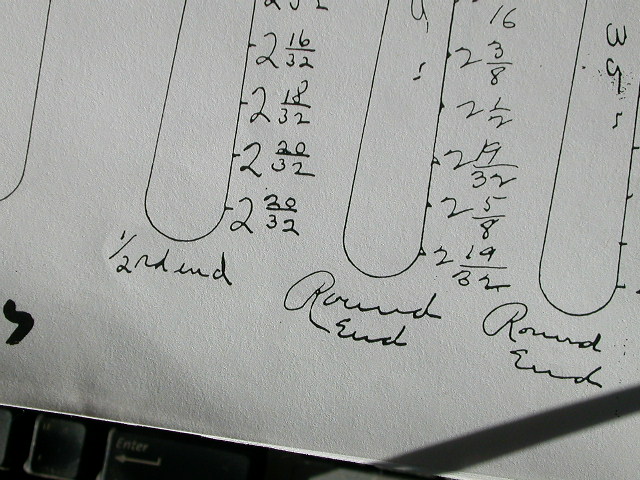 2 16/32
2 18/32
2 20/32
2 20/32
1/2 rd end
16
2 3/8
2 1/2
2 19/32
2 5/8
2 19/32
Round
End
35
Round
End
Enter